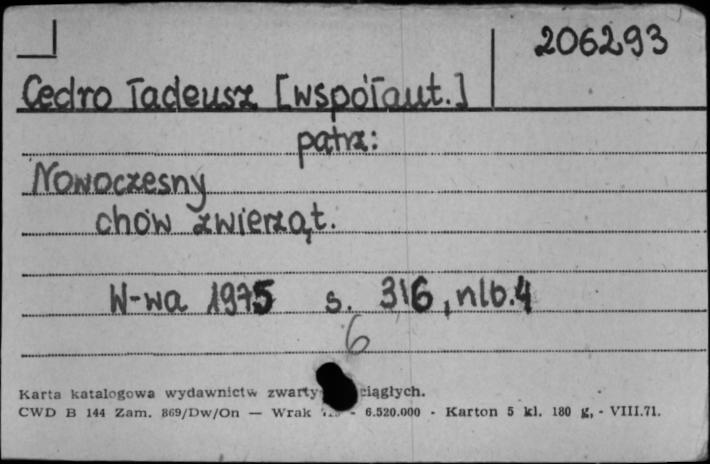 206293
Cedro Tadeusz [współaut.]
patrz:
Nowoczesny
chów zwierząt.
W-wa 1975 s. 316, nlb.4
6
Karta katalogowa wydawnictw ciągłych.
CWD B 144 Zam. 869/Dw/On — Wrak - 6.520.000 - Karton 5 kl. 180 g, - VIII.71.